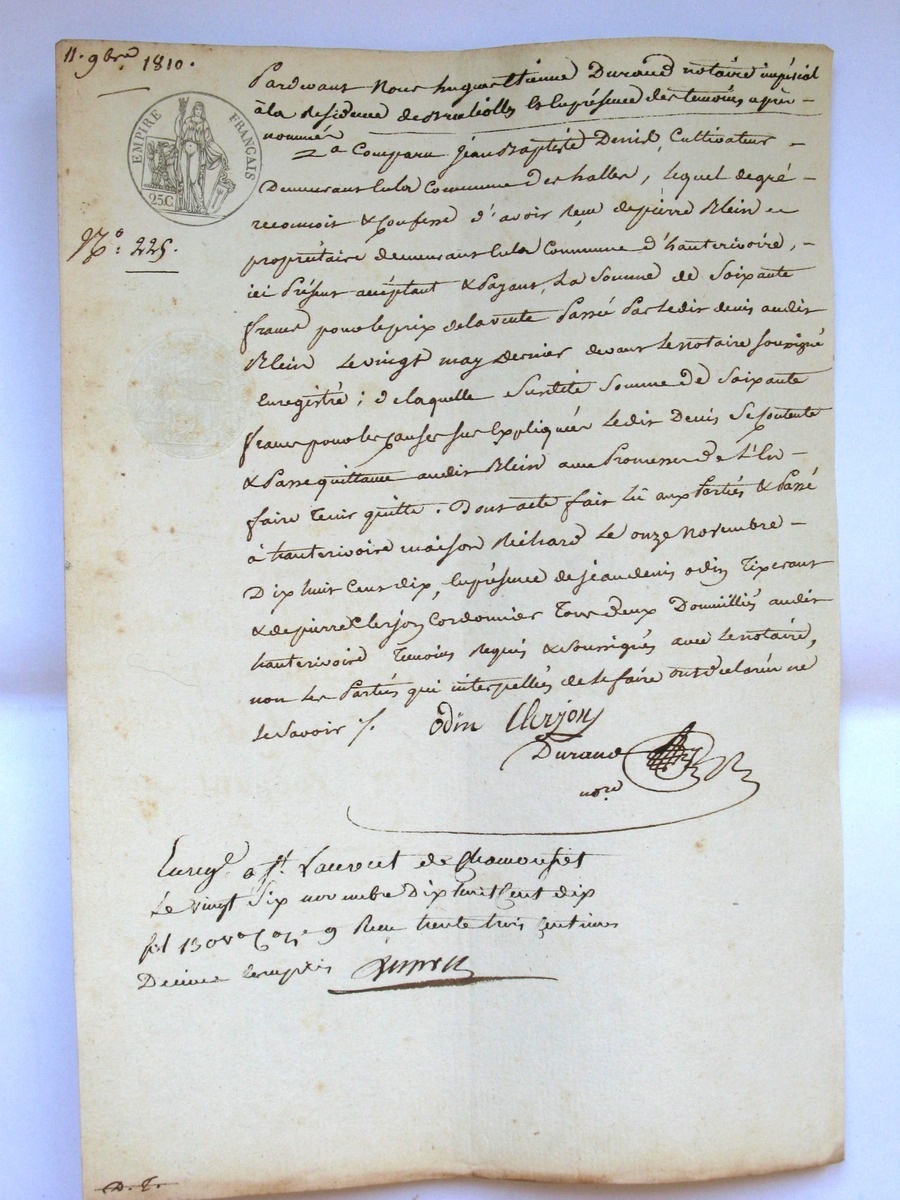 11. 9bre 1810.
EMPIRE FRANÇAIS
25C
No: 225.
Pardevant Nous hugues Etienne Durand notaire impérial
à la Residence de Brullioles En la présence des temoins après-
nommés
a Comparu Jean Baptiste Denis, Cultivateur
Demeurant En la Commune des halles, lequel de gré
reconnoit & Confesse d'avoir Reçu de pierre Blein
propriétaire demeurant En la Commune d'hauterivoire,
ici Présent acceptant & Payant, La Somme de Soixante
francs pour le prix de la vente Passé Par ledit denis audit
Blein Le vingt may Dernier devant le notaire Soussigné
Enregistré ; de laquelle Susdité Somme de Soixante
francs pour les Causes sus Expliquées Ledit Denis Se Contente
& Passe quittance audit Blein avec Promesse de L'En
faire tenir quitte. Dont acte fait lû aux Parties & Passé
à hauterivoire maison Richard Le onze Novembre
Dix huit Cent dix, En présence de jean denis odin Tixerant
& de pierre Clerjon Cordonnier Tous deux Domiciliés audit
hauterivoire Temoins Requis & Soussignés avec Le notaire,
non les Parties qui interpellées de le faire ont declarés ne
le Savoir ./.
Odin Clerjon
Durand
nore
Enregé a St. Laurent de Chamousset
Le vingt Six novembre Dix huit Cent dix
fol 13 0 Vo Case 9 Reçu trente trois Centimes
Decime Compris
D. T.